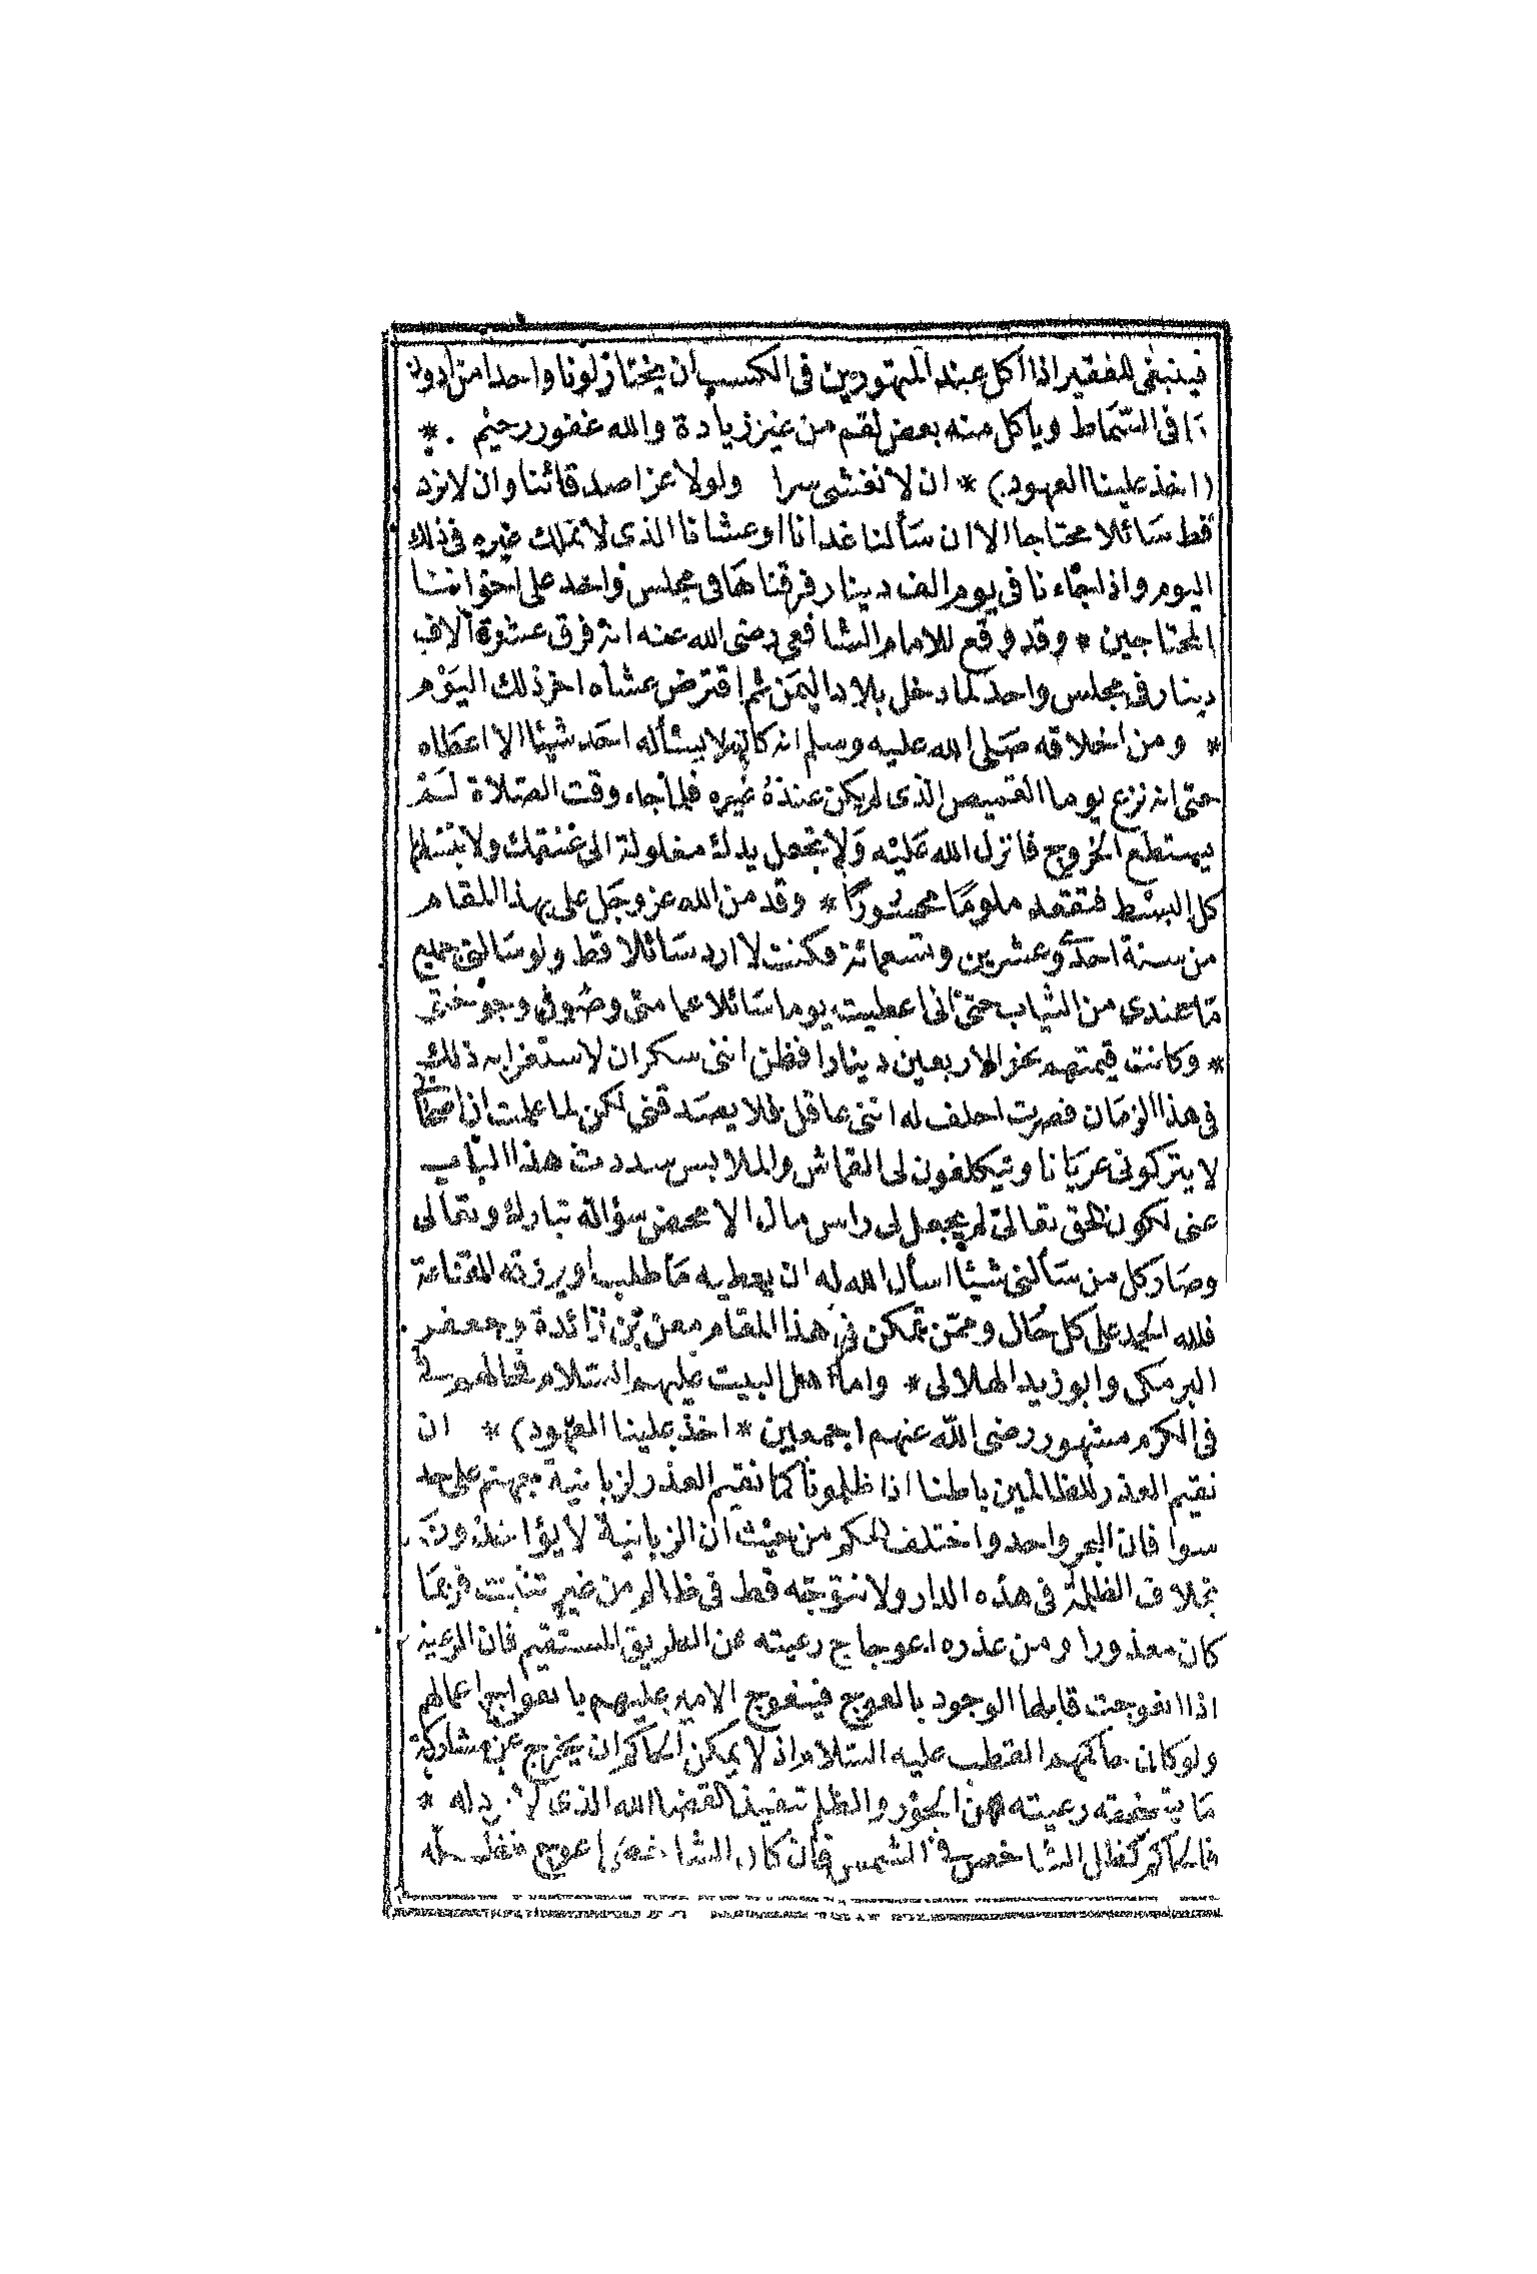 فينبغى للفقير اذا اكل عند المتهورين فى الكسب ان يختار لونا واحدا من ادون
ما فى السماط وياكل منه بعض لقم من غير زيادة والله غفور رحيم . *
(اخذ علينا العهود) * ان لا نفشى سرا ولو لاعز اصدقائنا وان لا نرد
قط سائلا محتاجا الا ان سألنا غدانا او عشانا الذى لا نملك غيره فى ذلك
اليوم واذا جاءنا فى يوم الف دينار فرقناها فى مجلس واحد على اخواننا
المحتاجين * وقد وقع للامام الشافعى رضى الله عنه انه فرق عشرة آلاف
دينار فى مجلس واحد لما دخل بلاد اليمن ثم اقترض عشاه اخر ذلك اليوم
* ومن اخلاقه صلى الله عليه وسلم انه كان لا يسأله احد شيئا الا اعطاه
حتى انه نزع يوما القميص الذى لم يكن عنده غيره فلما جاء وقت الصلاة لم
يستطع الخروج فانزل الله عليه ولا تجعل يدك مغلولة الى عنقك ولا تبسطها
كل البسط فتقعد ملوما محسورا * وقد من الله عز وجل على بهذا المقام
من سنة احد وعشرين وتسعمائة فكنت لا ارد سائلا قط ولو سألنى جميع
ما عندى من الثياب حتى انى اعطيت يوما سائلا عمامتى وصوفى وجوختى
* وكانت قيمتهم نحو الاربعين دينارا فظن اننى سكران لاستغرابه ذلك
فى هذا الزمان فصرت احلف له اننى عاقل فلا يصدقنى لكن لما علمت ان اصحابى
لا يتركونى عريانا ويتكلفون لى القماش والملابس سددت هذا الباب
عنى لكون الحق تعالى لم يجعل لى راس مال الا محض سؤاله تبارك وتعالى
وصار كل من سألنى شيئا اسأل الله له ان يعطيه ما طلب او يرزقه القناعة
فلله الحمد على كل حال وممن تمكن فى هذا المقام معن بن زائدة وجعفر
البرمكى وابو زيد الهلالى * واما اهل البيت عليهم السلام فحالهم
فى الكرم مشهور رضى الله عنهم اجمعين * اخذ علينا العهود) * ان
نقيم العذر للظالمين باطنا اذا ظلمونا كما نقيم العذر لزبانية جهنم على حد
سوا فان الامر واحد واختلف الحكم من حيث ان الزبانية لا يؤاخذون
بخلاف الظلمة فى هذه الدار ولا نتوجه قط فى ظالم من غير تثبت فربما
كان معذورا ومن عذره اعوجاج رعيته عن الطريق المستقيم فان الرعية
اذا انعوجت قابلها الوجود بالعوج فينعوج الامير عليهم بانعواج اعمالهم
ولو كان حاكمهم القطب عليه السلام اذ لا يمكن الحاكم ان يخرج عن مشاركة
ما يستحقه رعيته من الجور والظلم تنفيذا لقضا الله الذى لا مرد له *
فالحاكم كظل الشاخص فى الشمس فان كان الشاخص اعوج فظله